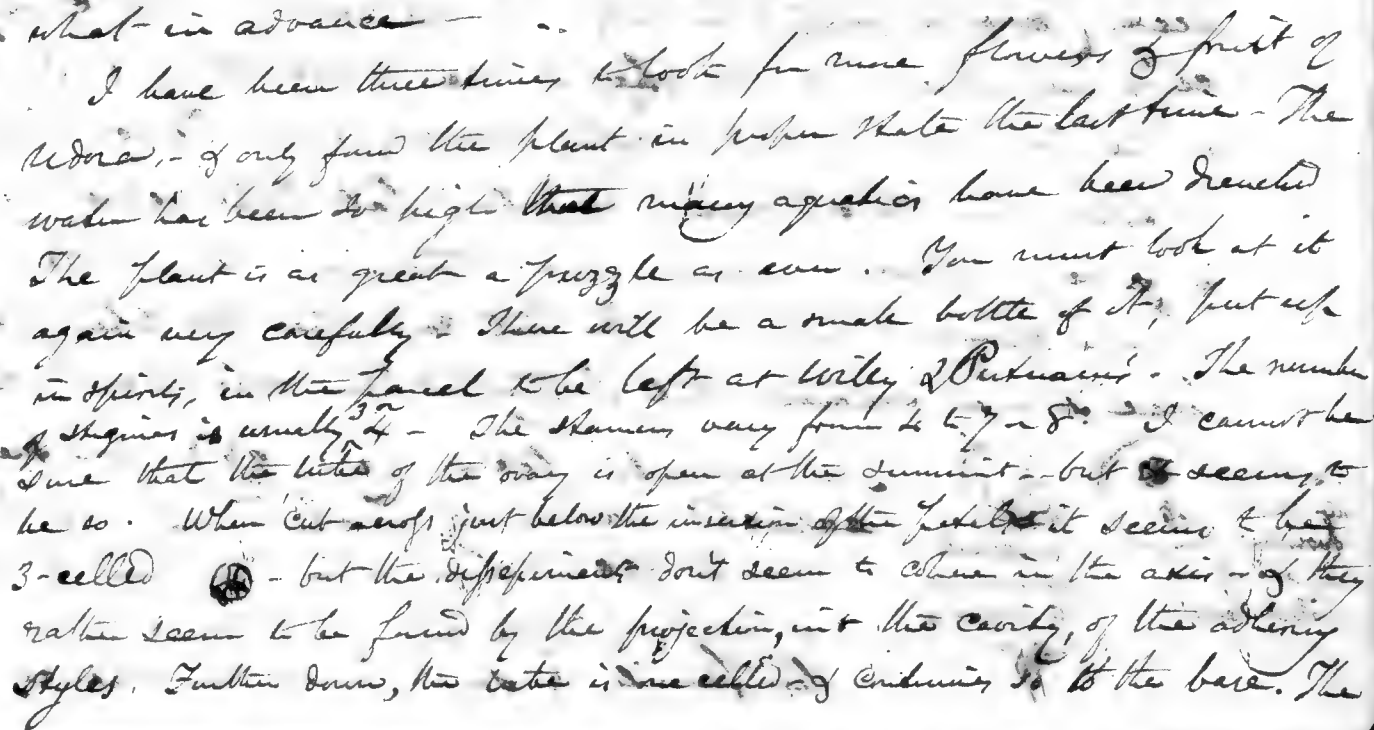 what in advance —
I have been three times to look for more flowers & fruit of
Udora, - & only found the plant in proper state the last time - The
water has been so high that many aquatics have been drenched
The plant is as great a puzzle as ever.. You must look at it
again very carefully - There will be a small bottle of it, put up
in spirits, in the parcel to be left at Wiley & Putnam's. The number
of stigmas is usually 3 or 4 - The stamens vary from 4 to 7 or 8. I cannot be
sure that the tube of the ovary is open at the summit -- but it seems to
be so. When cut across just below the insertion of the petals it seems to be
3-celled - but the dissepiments don't seem to cohere in the axis - & they
rather seem to be formed by the projection, into the cavity, of the adhering
styles. Further down, the tube is one celled - & continues so to the base. The